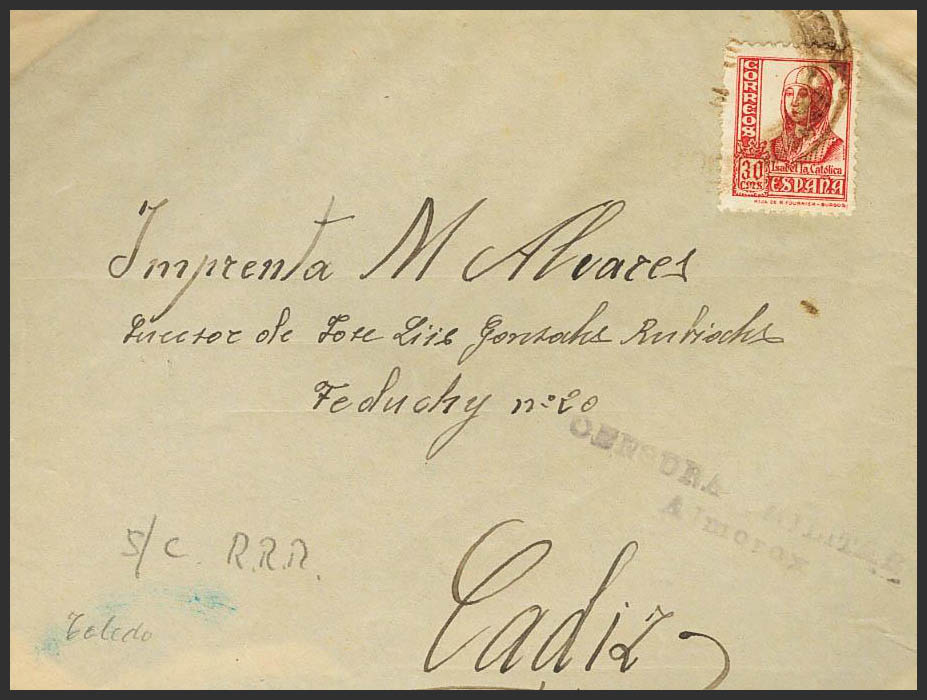 CORREOS
30 CTMS
Isabel la Católica
ESPAÑA
HIJA DE B. FOURNIER-BURGOS
Imprenta M Alvares
Sucesor de Jose Liis Gonsales
Feduchy nº 20
CENSURA MILITAR
Almorox
S/C R.R.R.
Toledo
Cadiz